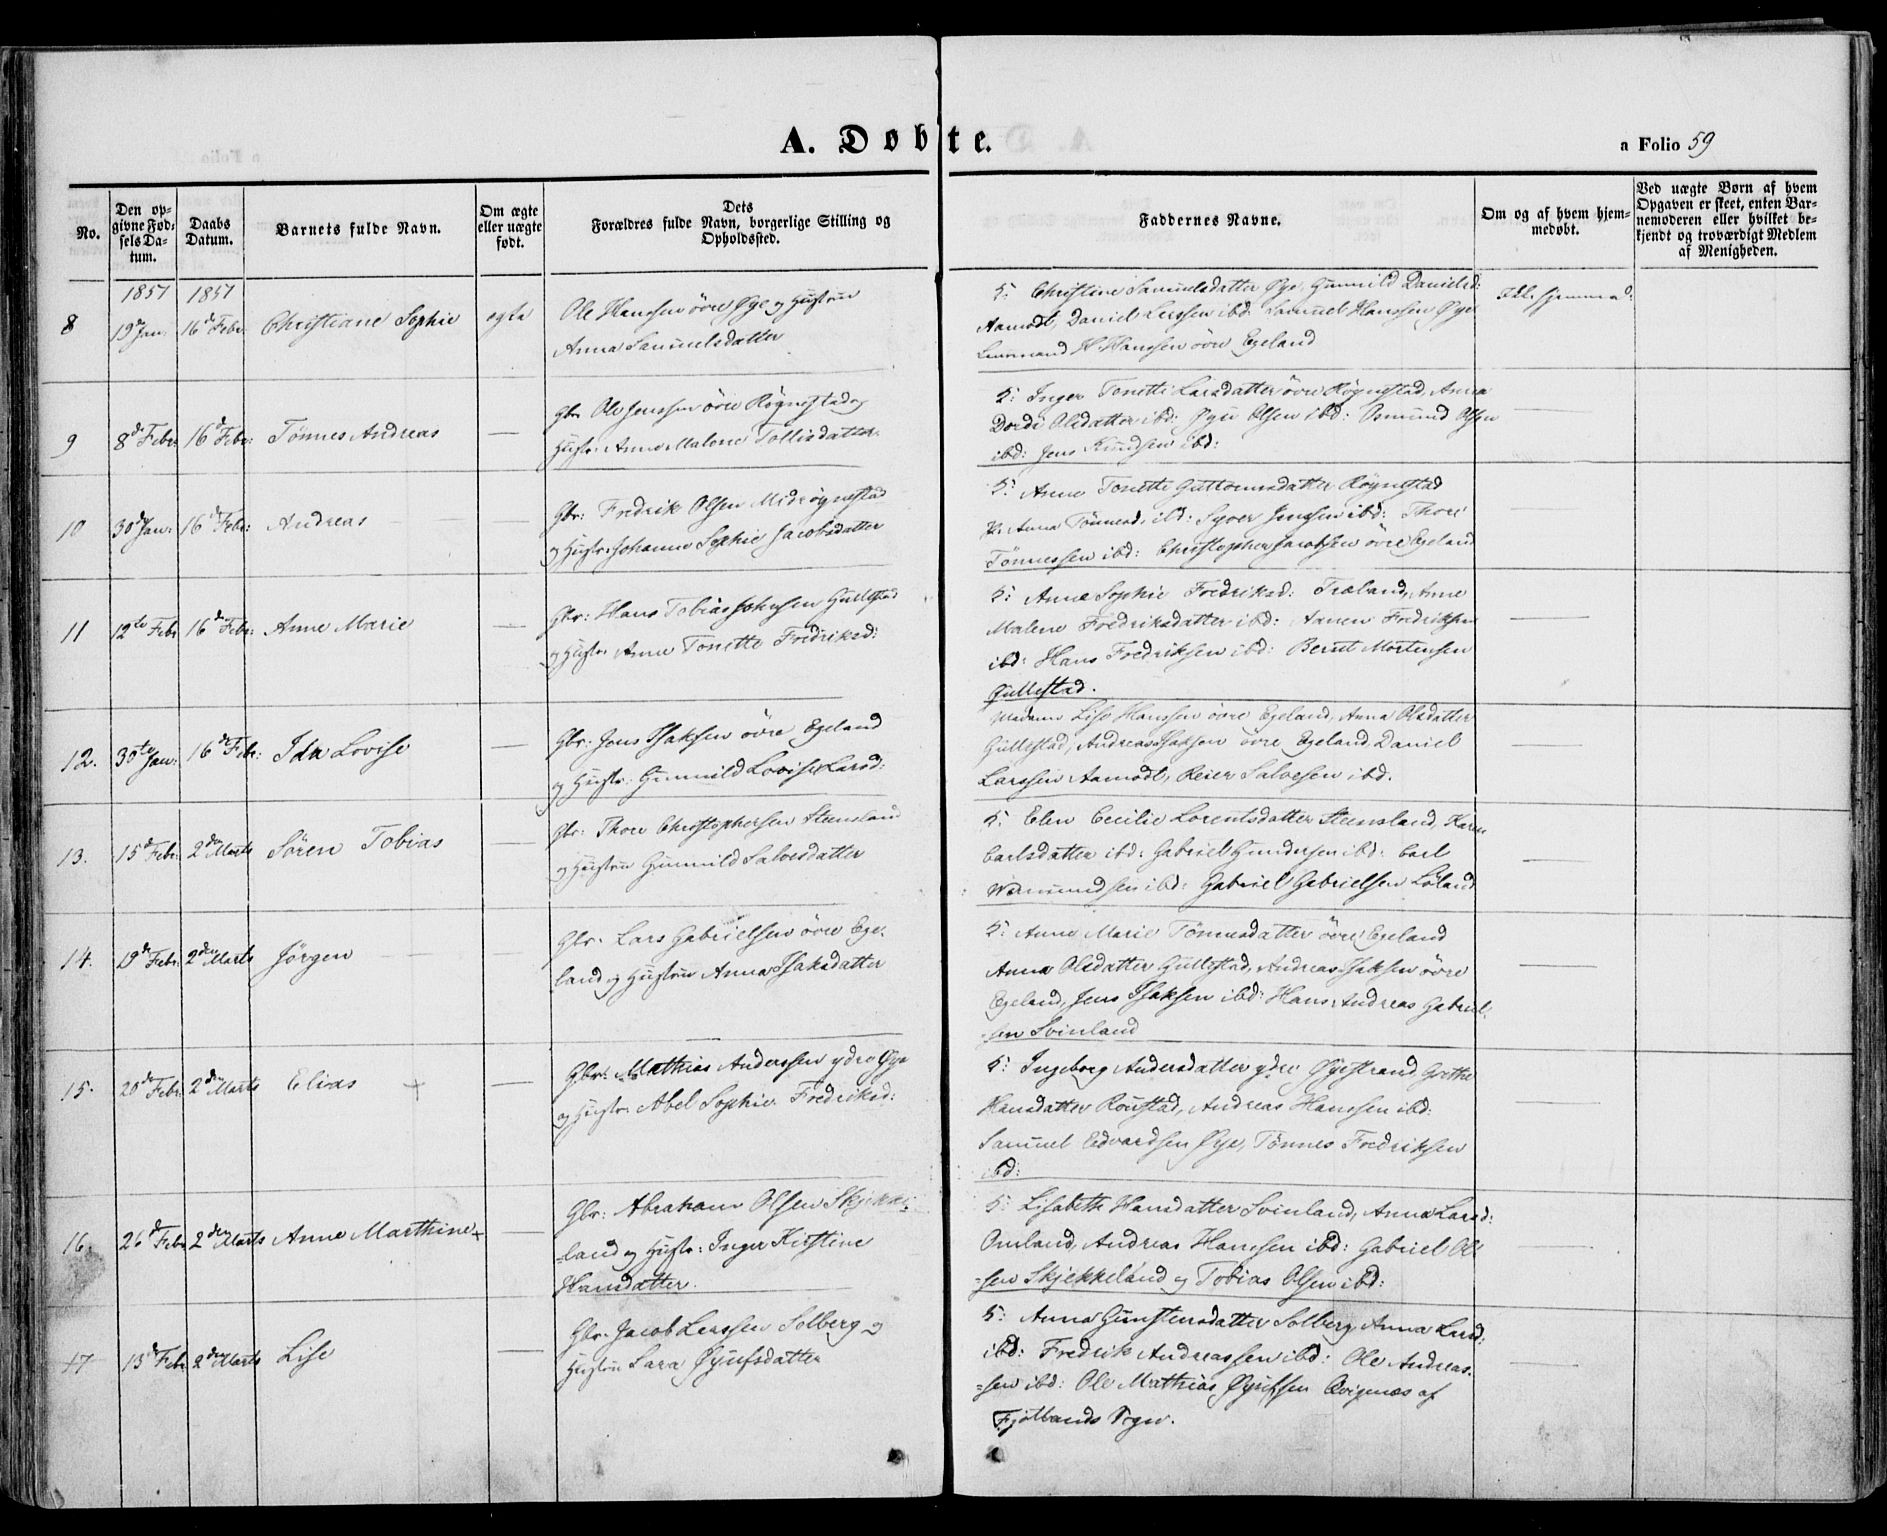 A. Døbte.
a Folio 59
No.
Den op-
givne Fød-
sels Da-
tum.
Daabs
Datum.
Barnets fulde Navn.
Om ægte
eller uægte
født.
Dets
Forældres fulde Navn, borgerlige Stilling og
Opholdssted.
Faddernes Navne.
Om og af hvem hjem-
medøbt.
Ved uægte Børn af hvem
Opgaven er skeet, enten Bar-
nemoderen eller hvilket be-
kjendt og troværdigt Medlem
af Menigheden.
1851 1851
8 19de Jan. 16de Febr. Christiane Sophie ægte
Ole Hanssen övre Øye og Hustrue
Anna Samuelsdatter
5: Christine Samuelsdatter Øye, Gunnild Danielsd:
Aamodt, Daniel Larssen ibd: Samuel Hanssen Øye
Lensmand H. Hanssen övre Egeland
Ikke hjemmed:
9 8de Febr. 16de Febr: Tønnes Andreas —
Gbr Ole Jenssen övre Røgnestad og
Hustr: Anne Malene Tollisdatter
5: Inger Tonette Larsdatter övre Røgnestad, Anna
Dorde Olsdatter ibd: Øyu Olsen ibd: Osmund Olsen
ibd: Jens Knudsen ibd:
10 30de Jan: 16de Febr: Andreas —
Gbr: Fredrik Olsen Midrøgnestad
og Hustr: Johanne Sophie Jacobsdatter
5: Anne Tonette Guttormsdatter Røgnestad
P. Anna Tønnesd. ibd: Syver Jenssen ibd: Thore
Tønnessen ibd: Christopher Jacobsen övre Egeland
11 12te Febr 16de Febr: Anne Marie —
Gbr: Hans Tobias Johnsen Gullestad
og Hustr Anne Tonette Fredriksd:
5: Anne Sophie Fredriksd: Træland, Anne
Malene Fredriksdatter ibd: Aanen Fredriksen
ibd: Hans Fredriksen ibd: Bernt Mortensen
Gullestad.
12. 30te Jan: 16de Febr: Ida Lovise —
Gbr: Jens Isaksen övre Egeland
og Hustr: Gunnild Lovise Larsd:
Madame Lise Hanssen övre Egeland, Anna Olsdatter
Gullestad, Andreas Isaksen övre Egeland, Daniel
Larssen Aamodt, Reier Salvesen ibd.
13. 15de Febr. 2den Marts Søren Tobias —
Gbr: Thore Christophersen Steensland
og Hustrue Gunnild Salvesdatter
5: Elen Cecilie Lorentsdatter Steensland, Karen
Carlsdatter ibd: Gabriel Gundersen ibd: Carl
Wermundsen ibd: Gabriel Gabrielsen Loland
14. 19de Febr: 2den Marts Jörgen —
Gbr: Lars Gabrielsen övre Ege-
land og Hustrue Anna Isaksdatter
5: Anne Marie Tønnesdatter övre Egeland
Anna Olsdatter Gullestad, Andreas Isaksen övre
Egeland, Jens Isaksen ibd: Hans Andreas Gabriel-
sen Svinland
15. 20de Febr: 2den Marts Elias + —
Gbr: Mathias Anderssen ydre Øye
og Hustr: Abel Sophie Fredriksd:
5: Ingeborg Andersdatter ydre Øyestrand, Grethe
Hansdatter Roustad, Andreas Hanssen ibd:
Samuel Edvardsen Øye, Tønnes Fredriksen
ibd:
16. 26de Febr 2den Marts Anne Marthine + —
Gbr: Abraham Olsen Skjekke-
land og Hustr: Inger Kirstine
Hansdatter.
5: Lisabeth Hansdatter Svinland, Anna Larsd:
Omland, Andreas Hanssen ibd: Gabriel Ol-
sen Skjekkeland og Tobias Olsen ibd:
17 13de Febr 2den Marts Lise —
Gbr. Jacob Larssen Solberg og
Hustrue Sara Øyufsdatter
5: Anna Gunstensdatter Solberg, Anna Larsd:
ibd: Fredrik Andreassen ibd: Ole Andreas-
sen ibd: Ole Mathias Øyufsen Qvigenes af
Fjotlands Sogn.